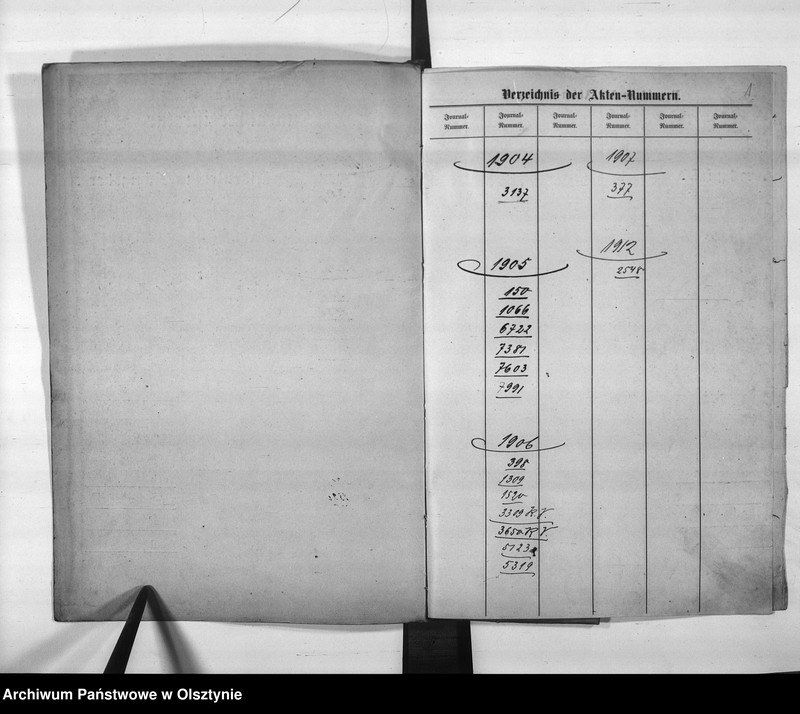 1
Verzeichnis der Akten-Nummern.
Journal-Nummer. Journal-Nummer. Journal-Nummer. Journal-Nummer. Journal-Nummer. Journal-Nummer.
1904
3137
1905
150
1066
6722
7381
7603
7991
1906
398
1309
1520
3309 K V.
3650 K V.
5123
5319
1907
377
1912
2548
Archiwum Państwowe w Olsztynie